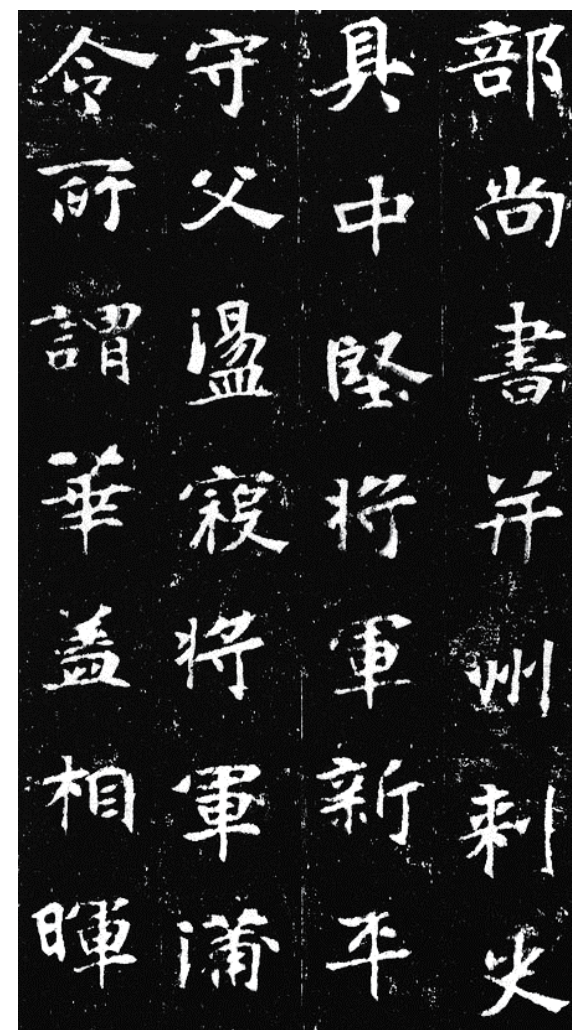 部尚書并州刺史
具中堅將軍新平
守父盪寇將軍蒲
令所謂華蓋相暉